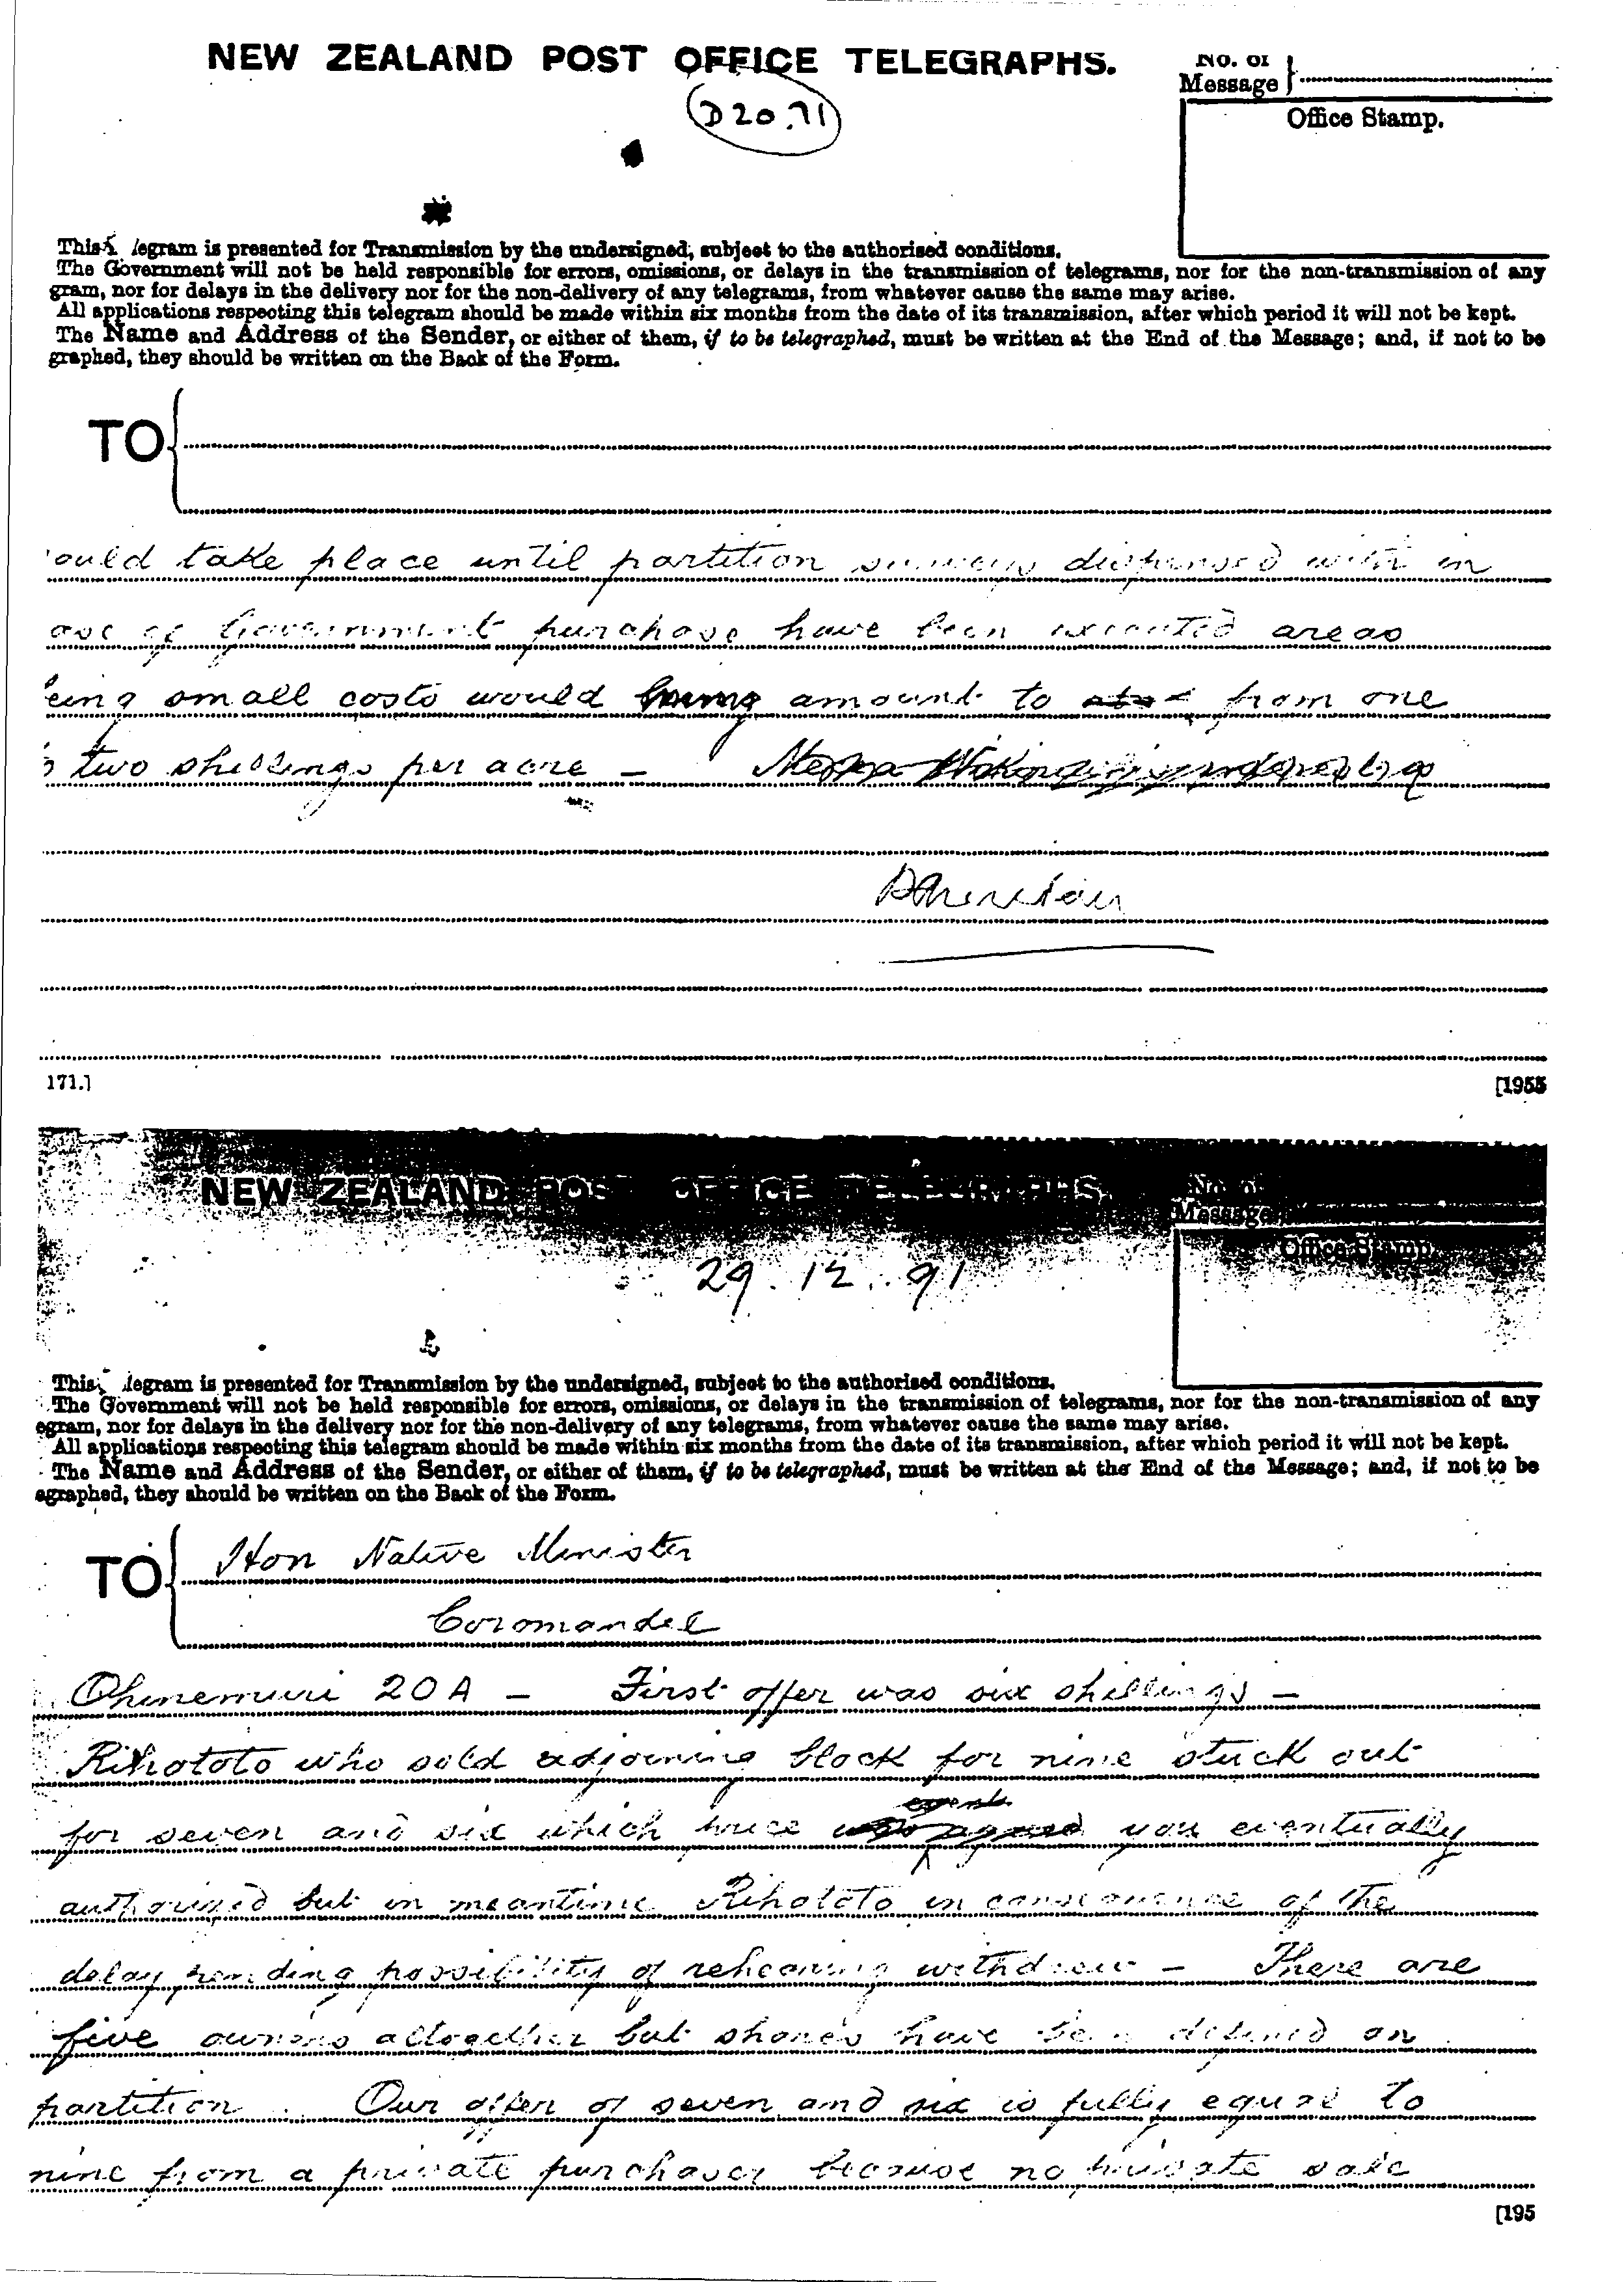 NEW ZEALAND POST OFFICE TELEGRAPHS.
No. of
Message
Office Stamp.
D20.71
This legram is presented for Transmission by the undersigned, subject to the authorised conditions.
The Government will not be held responsible for errors, omissions, or delays in the transmission of telegrams, nor for the non-transmission of any
gram, nor for delays in the delivery nor for the non-delivery of any telegrams, from whatever cause the same may arise.
All applications respecting this telegram should be made within six months from the date of its transmission, after which period it will not be kept.
The Name and Address of the Sender, or either of them, if to be telegraphed, must be written at the End of the Message; and, if not to be
graphed, they should be written on the Back of the Form.
TO
ould take place until partition surveys dispensed with in
ase of Government purchase have been executed areas
eing small costs would amount to from one
o two shillings per acre —
171.]
[1955
NEW ZEALAND POST OFFICE TELEGRAPHS.
No. of
Message
Office Stamp.
29.12.91
This legram is presented for Transmission by the undersigned, subject to the authorised conditions.
The Government will not be held responsible for errors, omissions, or delays in the transmission of telegrams, nor for the non-transmission of any
egram, nor for delays in the delivery nor for the non-delivery of any telegrams, from whatever cause the same may arise.
All applications respecting this telegram should be made within six months from the date of its transmission, after which period it will not be kept.
The Name and Address of the Sender, or either of them, if to be telegraphed, must be written at the End of the Message; and, if not to be
egraphed, they should be written on the Back of the Form.
TO Hon Native Minister
Coromandel
Ohinemuri 20A — First offer was six shillings —
Rihototo who sold adjoining block for nine stuck out
for seven and six which price was agreed you eventually
authorised but in meantime Rihototo in consequence of the
delay pending possibility of rehearing withdrew — There are
five owners altogether but shares have been defined on
partition. Our offer of seven and six is fully equal to
nine from a private purchaser because no private sale
[195